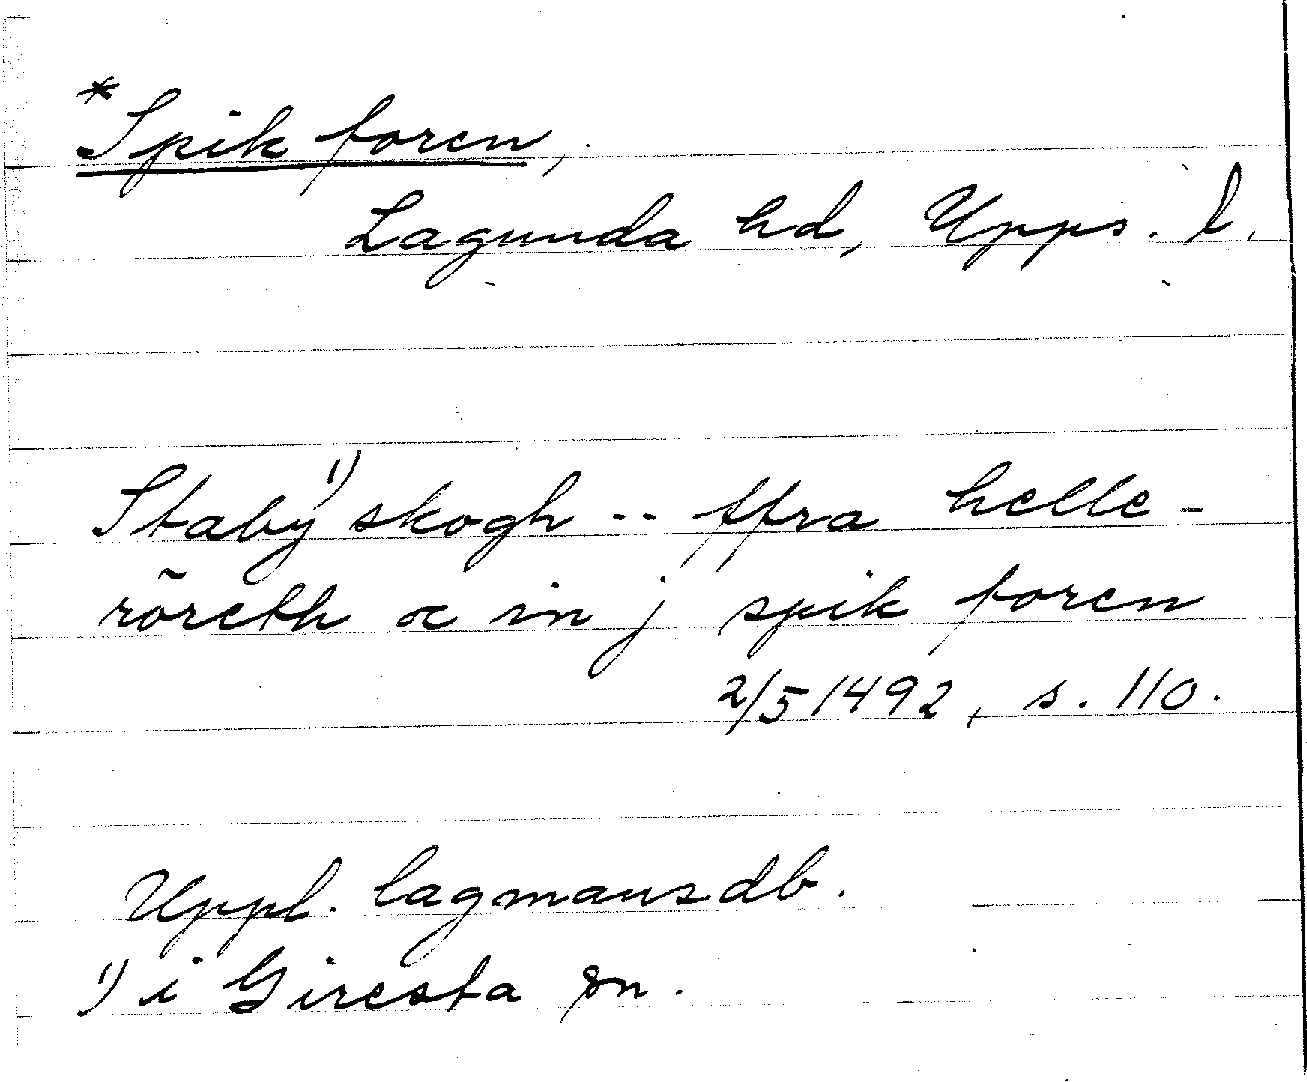 *Spik foren,
Lagunda hd, Upps. l.
Staby 1) skogh -- ffra helle-
röreth oc in j spik foren
2/5 1492, s. 110.
Uppl. lagmansdb.
1) i Giresta sn.